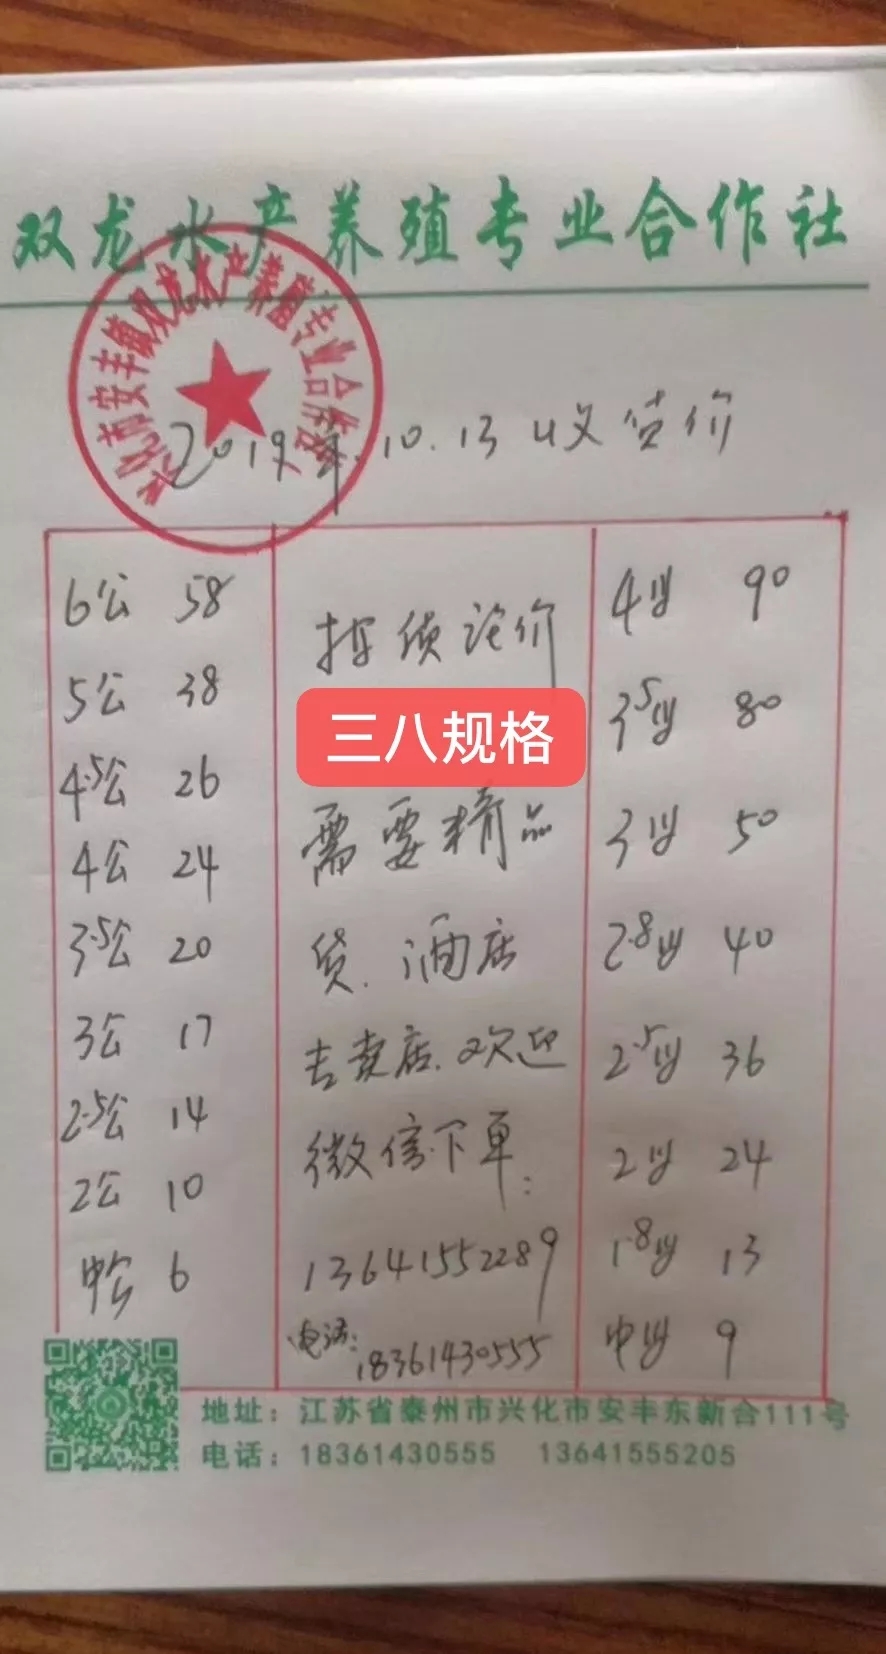 双龙水产养殖专业合作社
兴化市安丰镇双龙水产养殖专业合作社
2019年.10.13收货价
6公 58
5公 38
4.5公 26
4公 24
3.5公 20
3公 17
2.5公 14
2公 10
中公 6
按质论价
三八规格
需要精品
货.酒店
专卖店.欢迎
微信下单:
13641552289
电话:
18361430555
4母 90
3.5母 80
3母 50
2.8母 40
2.5母 36
2母 24
1.8母 13
中母 9
地址：江苏省泰州市兴化市安丰东新合111号
电话：18361430555 13641555205